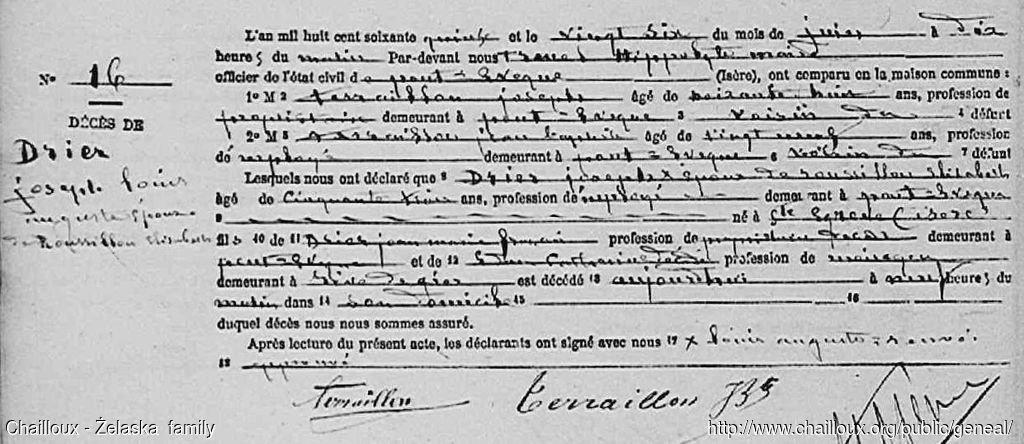 L'an mil huit cent soixante quinze et le vingt six du mois de juin à dix
heures du matin Par-devant nous Hippolyte maire
officier de l'état civil de pont-Evêque (Isère), ont comparu en la maison commune :
1º M 2 Terraillon joseph âgé de soixante huit ans, profession de
propriétaire demeurant à pont-Evêque 3 voisin du 4 défunt
2º M 5 Terraillon jean baptiste âgé de vingt neuf ans, profession
de employé demeurant à pont-Evêque 6 voisin du 7 défunt
Lesquels nous ont déclaré que 8 Drier joseph x époux de roussillon élisabeth
âgé de Cinquante trois ans, profession d'employé demeurant à pont-Evêque
9 né à (isère)
fils 10 de 11 Drier jean marie françois profession de propriétaire demeurant à
pont-Evêque et de 12 Catherine profession de ménagère
demeurant à rive de gier est décédé 13 aujourd'hui à neuf heures du
matin dans 14 son domicile 15 16
duquel décès nous nous sommes assuré.
Après lecture du présent acte, les déclarants ont signé avec nous 17 x louis auguste = renvoi
18 approuvé
Nº 16
DÉCÈS DE
Drier
joseph louis
auguste époux
de Roussillon élisabeth
Terraillon Terraillon JBte
Chailloux - Żelaska family http://www.chailloux.org/public/geneal/